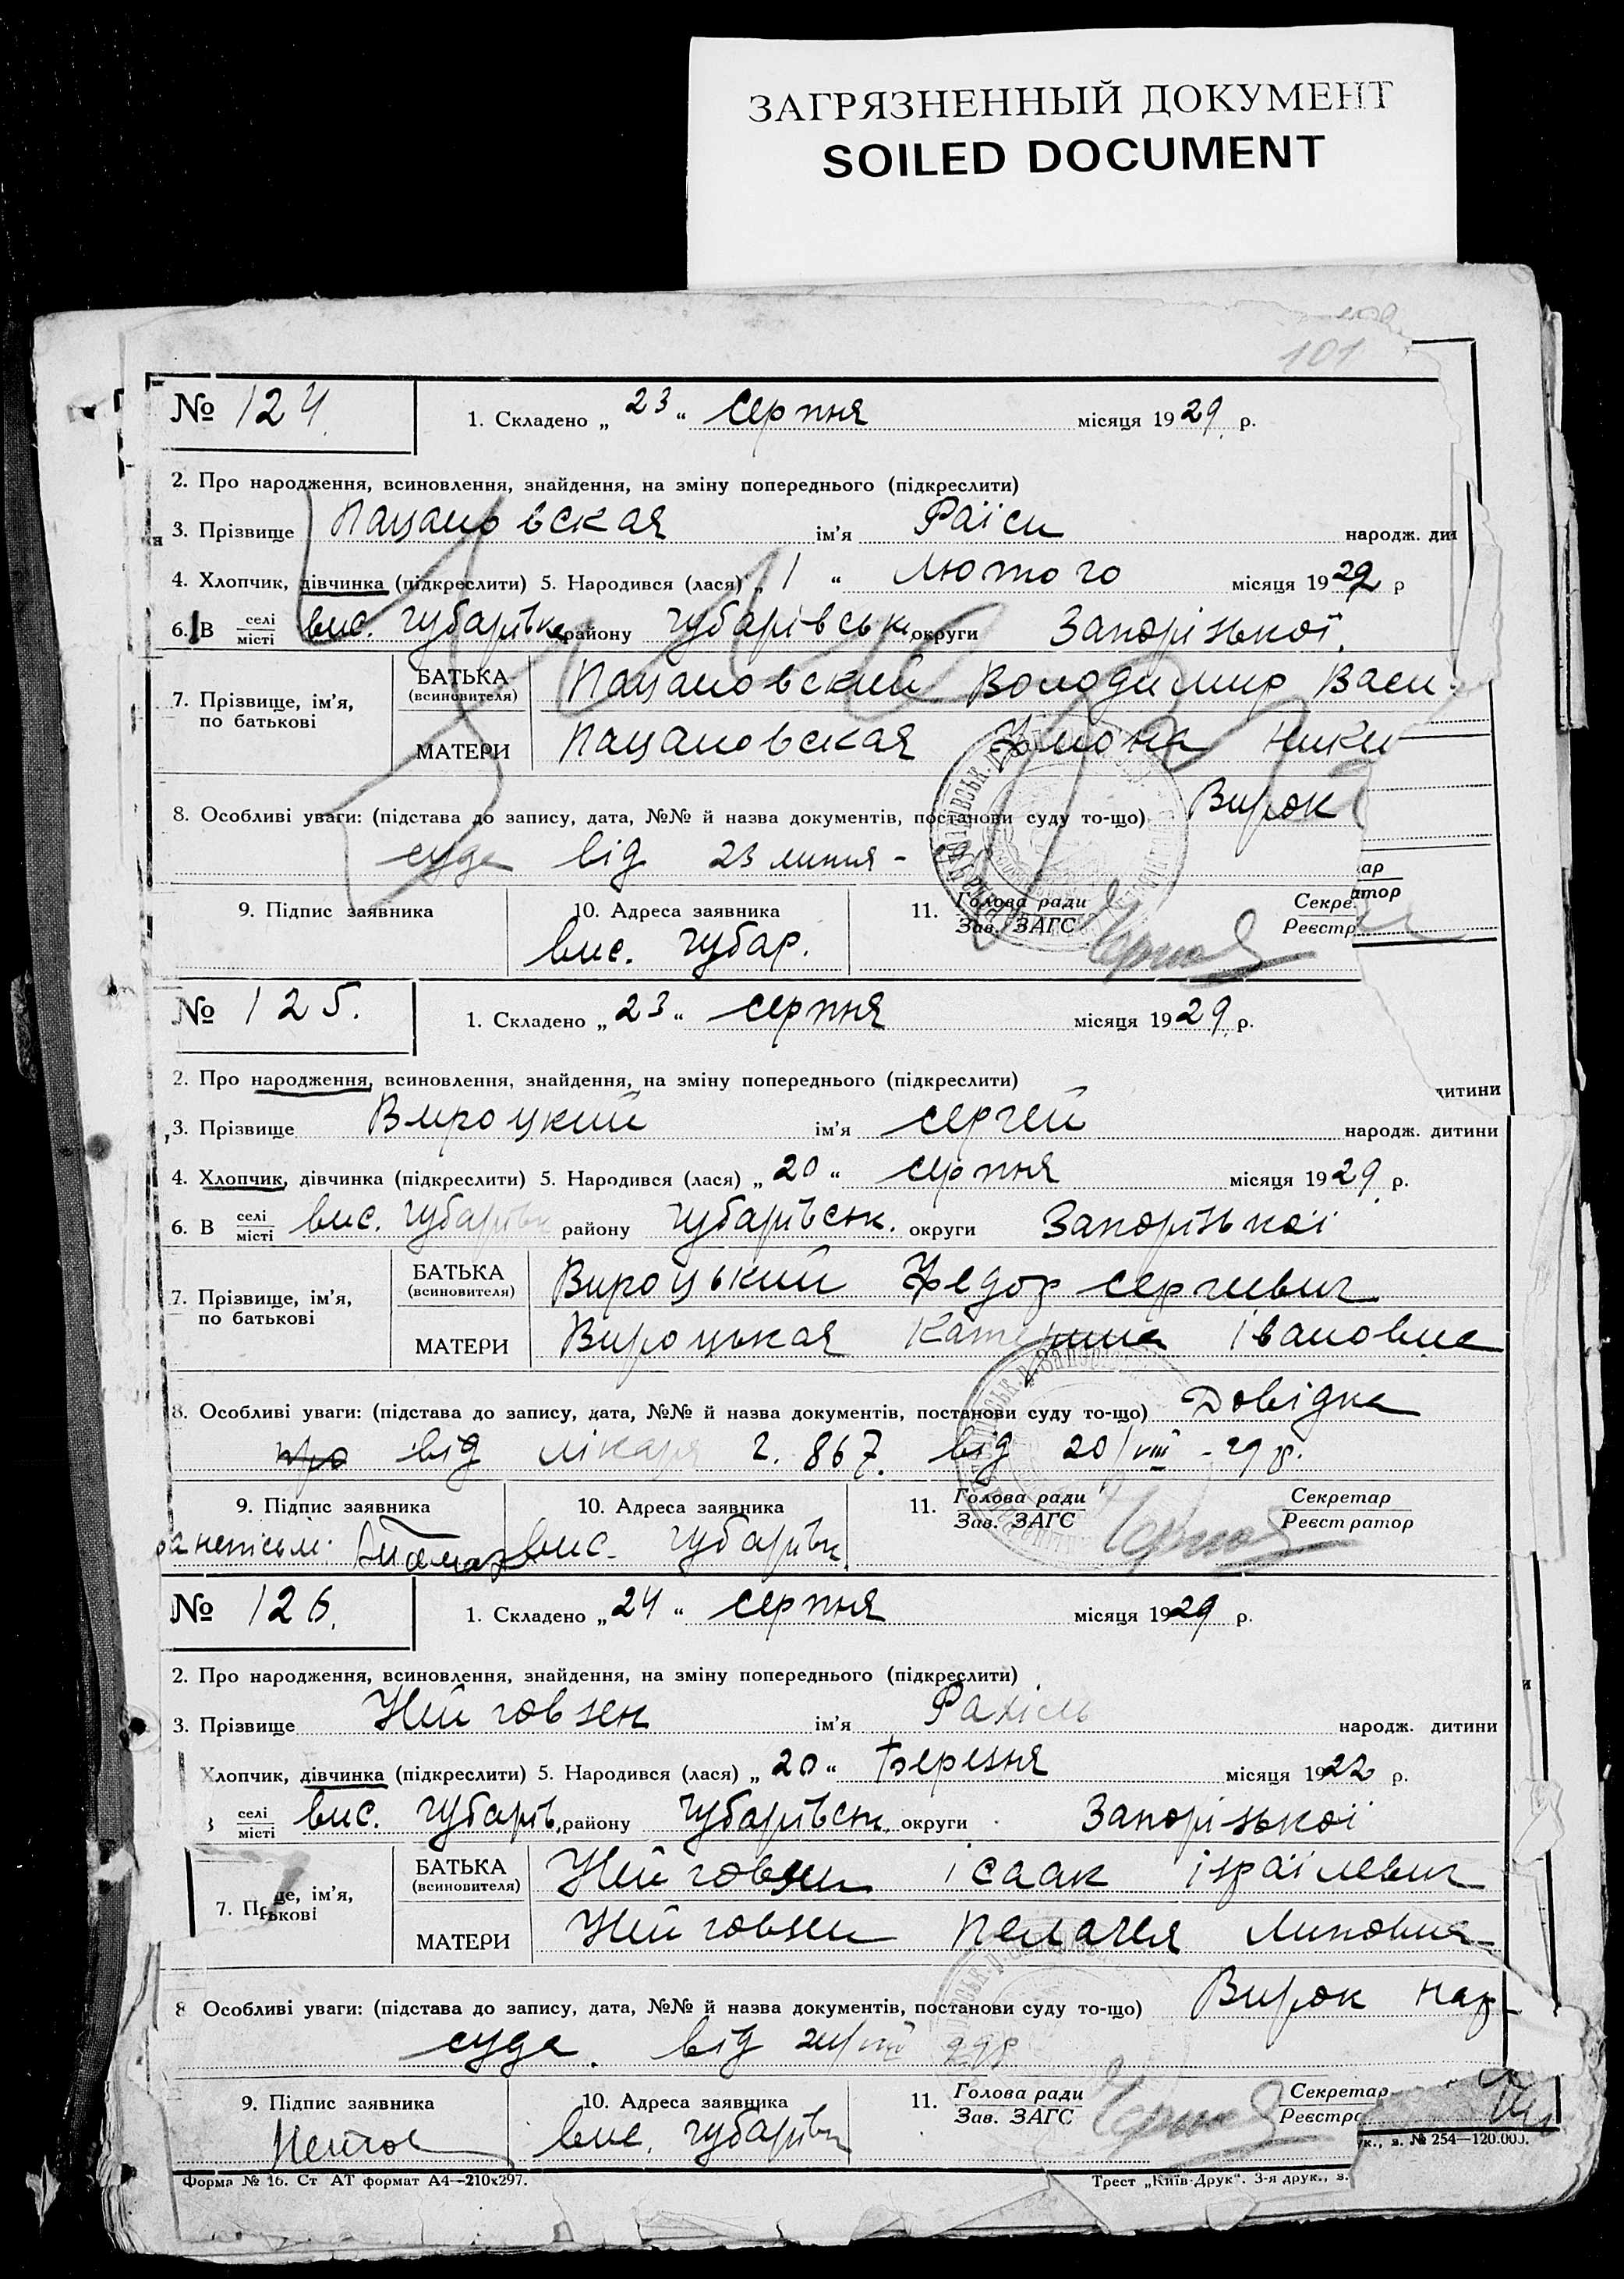 ЗАГРЯЗНЕННЫЙ ДОКУМЕНТ
SOILED DOCUMENT
101
№ 124. 1. Складено „23“ серпня місяця 1929. р.
2. Про народження, всиновлення, знайдення, на зміну попереднього (підкреслити)
3. Прізвище Пацановская ім'я Раїси народж. ди
4. Хлопчик, дівчинка (підкреслити) 5. Народився (лася) „1“ Лютого місяця 1929 р
6. В селі місті вис. Губарівке району Губарівськ округи Запорізької.
7. Прізвище, ім'я, по батькові
БАТЬКА (всиновителя) Пацановский Володимир Васи
МАТЕРИ Пацановская Хімона Ники
8. Особливі уваги: (підстава до запису, дата, №№ й назва документів, постанови суду то-що) Вирок
суда від 23 липня -
9. Підпис заявника 10. Адреса заявника 11. Голова ради Зав. ЗАГС Секре Реєстр
вис. Губар.
№ 125. 1. Складено „23“ серпня місяця 1929. р.
2. Про народження, всиновлення, знайдення, на зміну попереднього (підкреслити)
3. Прізвище Вироцкий ім'я Сергей народж. дитини
4. Хлопчик, дівчинка (підкреслити) 5. Народився (лася) „20“ серпня місяця 1929. р.
6. В селі місті вис. Губарівк району Губарівськ. округи Запорізької
7. Прізвище, ім'я, по батькові
БАТЬКА (всиновителя) Вироцький Федор Сергиевич
МАТЕРИ Вироцькая Катерина Івановна
8. Особливі уваги: (підстава до запису, дата, №№ й назва документів, постанови суду то-що) Довідка
від лікаря г. 867. від 20/VIII - 29 р.
9. Підпис заявника 10. Адреса заявника 11. Голова ради Зав. ЗАГС Секретар Реєстратор
вис. Губарівк
№ 126. 1. Складено „24“ серпня місяця 1929 р.
2. Про народження, всиновлення, знайдення, на зміну попереднього (підкреслити)
3. Прізвище Ній говзен ім'я Рахіль народж. дитини
Хлопчик, дівчинка (підкреслити) 5. Народився (лася) „20“ Березня місяця 1922 р.
селі місті вис. Губарів. району Губарівськ. округи Запорізької
7. П ще, ім'я, ькові
БАТЬКА (всиновителя) Ній говзен Ісаак Ізраілевич
МАТЕРИ Ній говзен Пелагея Липовна
8 Особливі уваги: (підстава до запису, дата, №№ й назва документів, постанови суду то-що) Вирок нар
суда. від
9. Підпис заявника 10. Адреса заявника 11. Голова ради Зав. ЗАГС Секретар Реєстра
вис. Губарівк
ук., з. № 254—120.000.
Форма № 16. Ст АТ формат А4—210х297. Трест „Київ-Друк“. 3-я друк., з.